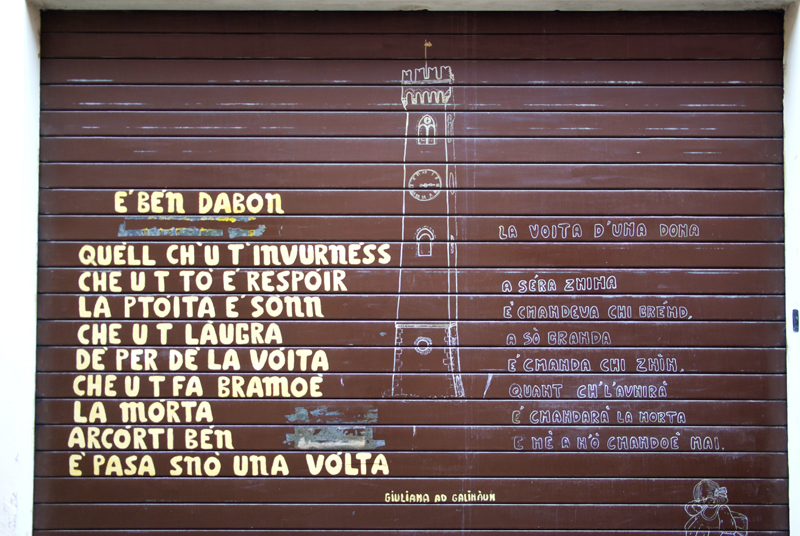 É BÉN DABON
QUÈLL CH'U T'INVURNESS
CHE U T TÒ É RESPOIR
LA PTÓITA E' SÒNN
CHE U T LÁUGRA
DÈ PER DÈ LA VÓITA
CHE U T FA BRAMOÈ
LA MÓRTA
ARCÓRTI BÉN
È PASA SNÒ UNA VÓLTA
LA VOITA D'UNA DONA
A SÉRA ZNINA
E' CMANDEVA CHI GRÉND,
A SÒ GRANDA
E' CMANDA CHI ZNÌN,
QUANT CH'L'AVNIRÀ
E' CMANDARÀ LA MORTA
E MÈ A N'Ò CMANDOÈ MAI.
GIULIANA AD GALINÀUN